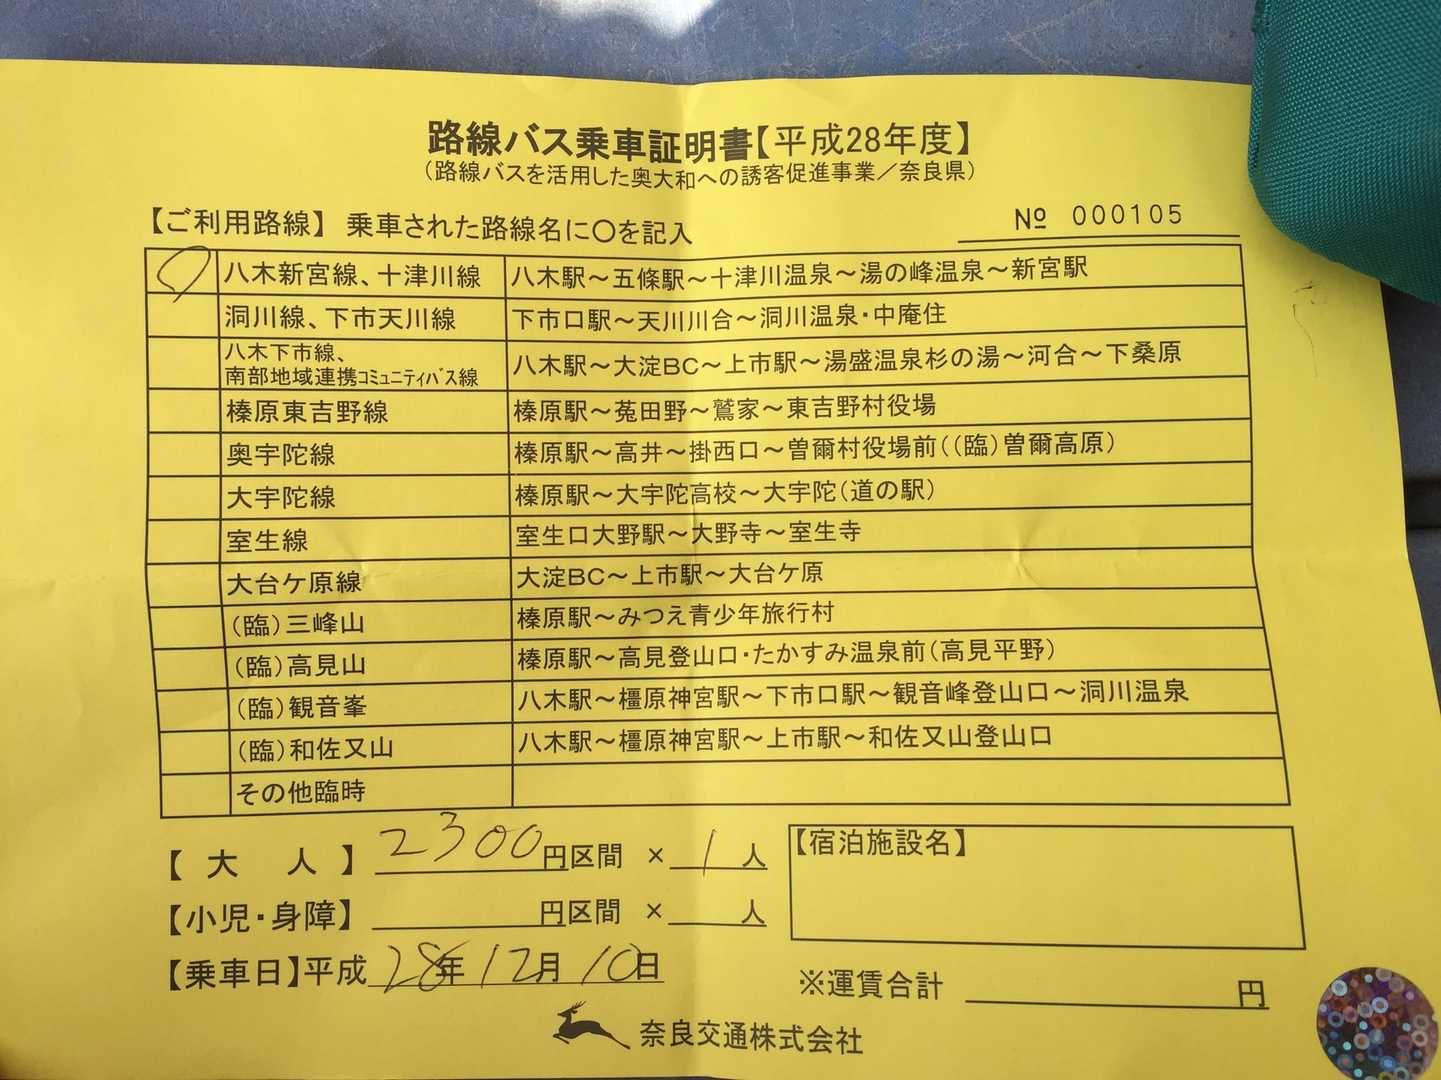 路線バス乗車証明書【平成28年度】
（路線バスを活用した奥大和への誘客促進事業／奈良県）
【ご利用路線】 乗車された路線名に〇を記入
№ 000105
〇 八木新宮線、十津川線 八木駅～五條駅～十津川温泉～湯の峰温泉～新宮駅
洞川線、下市天川線 下市口駅～天川川合～洞川温泉・中庵住
八木下市線、
南部地域連携コミュニティバス線 八木駅～大淀BC～上市駅～湯盛温泉杉の湯～河合～下桑原
榛原東吉野線 榛原駅～菟田野～鷲家～東吉野村役場
奥宇陀線 榛原駅～高井～掛西口～曽爾村役場前（（臨）曽爾高原）
大宇陀線 榛原駅～大宇陀高校～大宇陀（道の駅）
室生線 室生口大野駅～大野寺～室生寺
大台ケ原線 大淀BC～上市駅～大台ケ原
（臨）三峰山 榛原駅～みつえ青少年旅行村
（臨）高見山 榛原駅～高見登山口・たかすみ温泉前（高見平野）
（臨）観音峯 八木駅～橿原神宮駅～下市口駅～観音峰登山口～洞川温泉
（臨）和佐又山 八木駅～橿原神宮駅～上市駅～和佐又山登山口
その他臨時
【大人】 2300円区間 × 1人
【小児・身障】 円区間 × 人
【乗車日】平成28年12月10日
【宿泊施設名】
※運賃合計 円
奈良交通株式会社